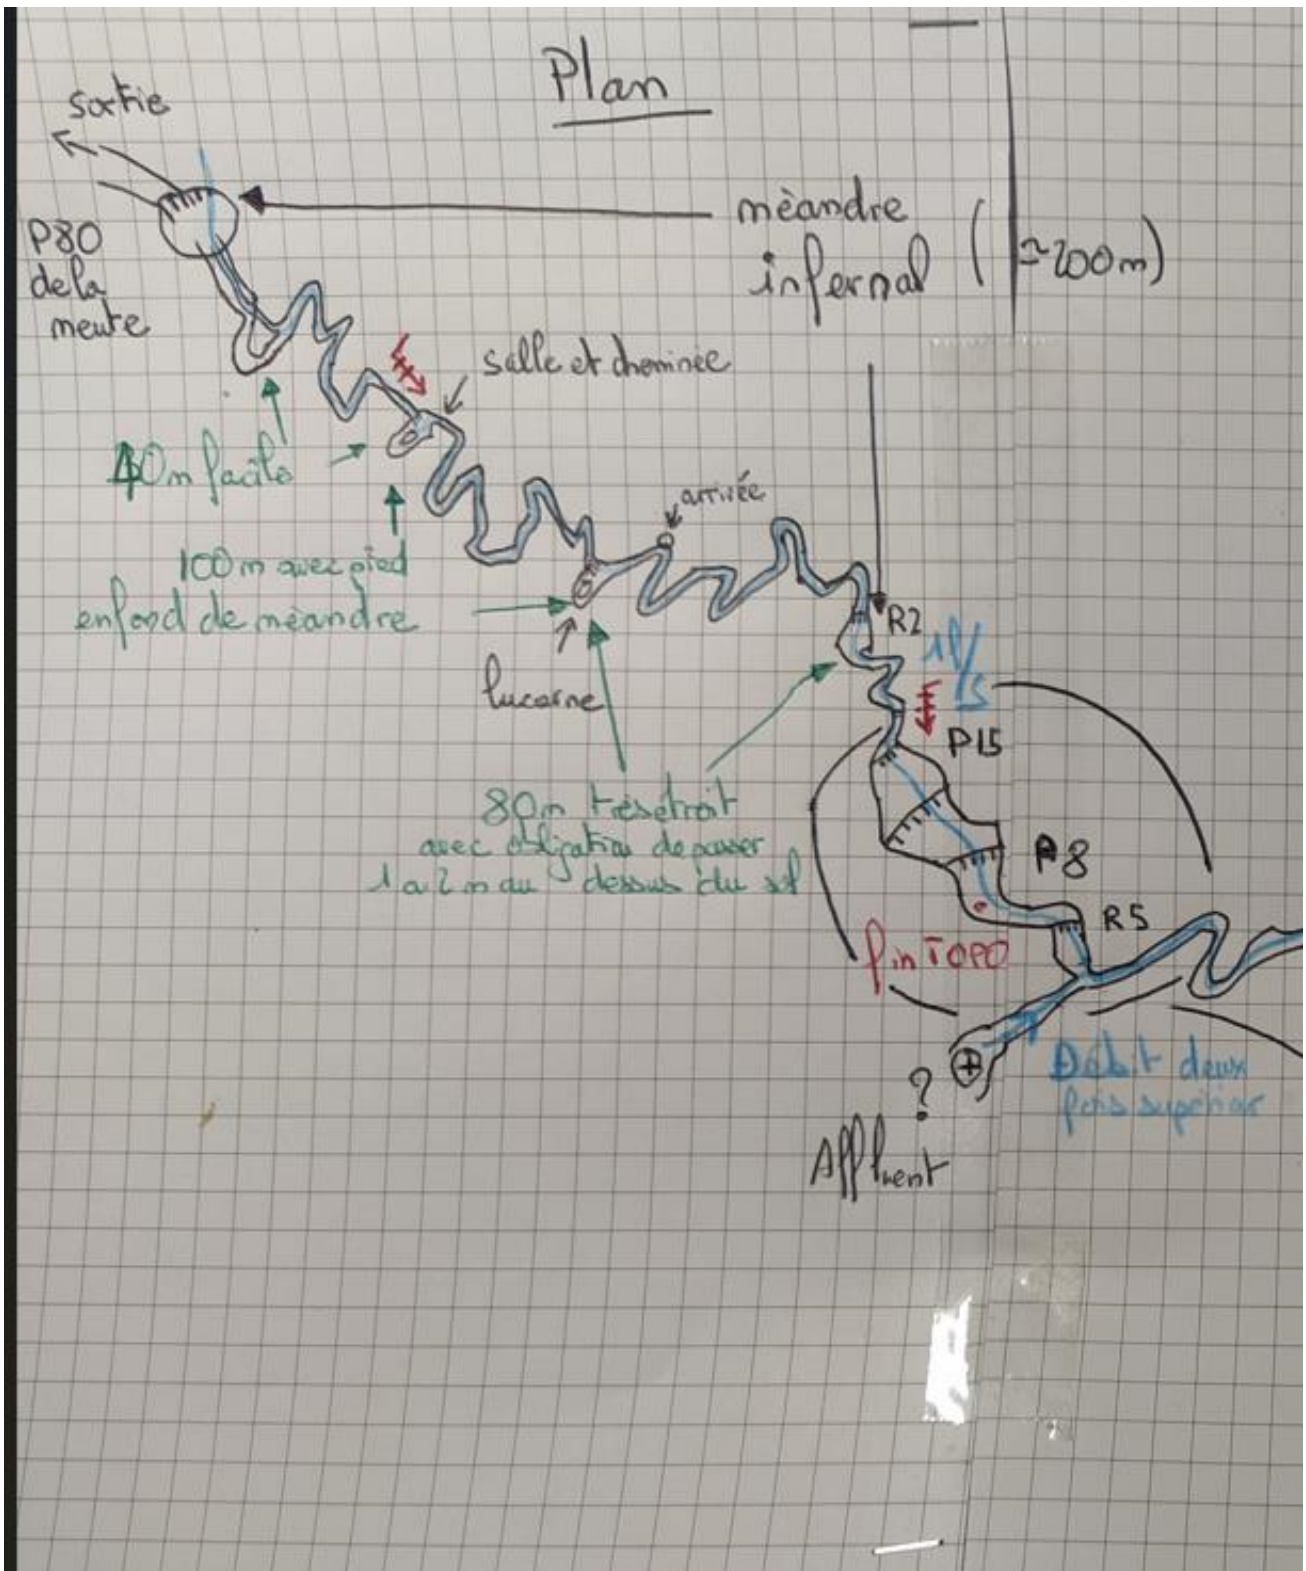 Plan
sortie
méandre
infernal (≃200m)
P80
de la
meute
salle et cheminée
40m facile
arrivée
100m avec pied
en fond de méandre
R2
1l/s
lucarne
P15
80m très étroit
avec obligation de passer
1 a 2 m au dessus du sol
P8
R5
fin TOPO
Débit deux
fois supérieur
?
Affluent